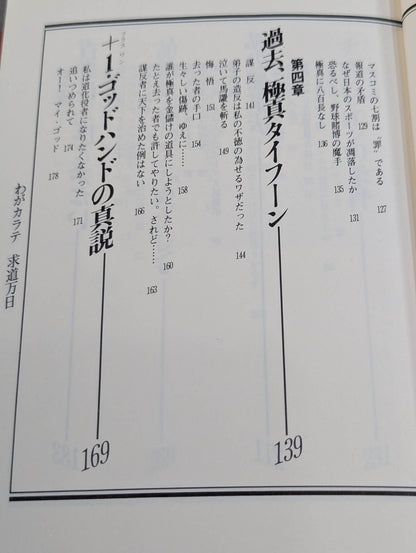 マスコミの七割は〝罪〟である 127
報道の矛盾 129
なぜ日本のスポーツが凋落したか 131
恐るべし、野球賭博の魔手 135
極真に八百長なし 136
第四章
過去、極真タイフーン 139
謀反 141
弟子の造反は私の不徳の為せるワザだった 144
泣いて馬謖を斬る 149
悔悟 151
去った者の手口 154
生々しい傷跡、ゆえに…… 158
誰が極真を金儲けの道具にしようとしたか? 160
たとえ去った者でも許してやりたい。されど…… 163
謀反者に天下を治めた例はない 166
プラス・ワン
+1・ゴッドハンドの真説 169
私は道化役者になりたくなかった 171
追いつめられて 174
オー！ マイ・ゴッド 178
わがカラテ 求道万日